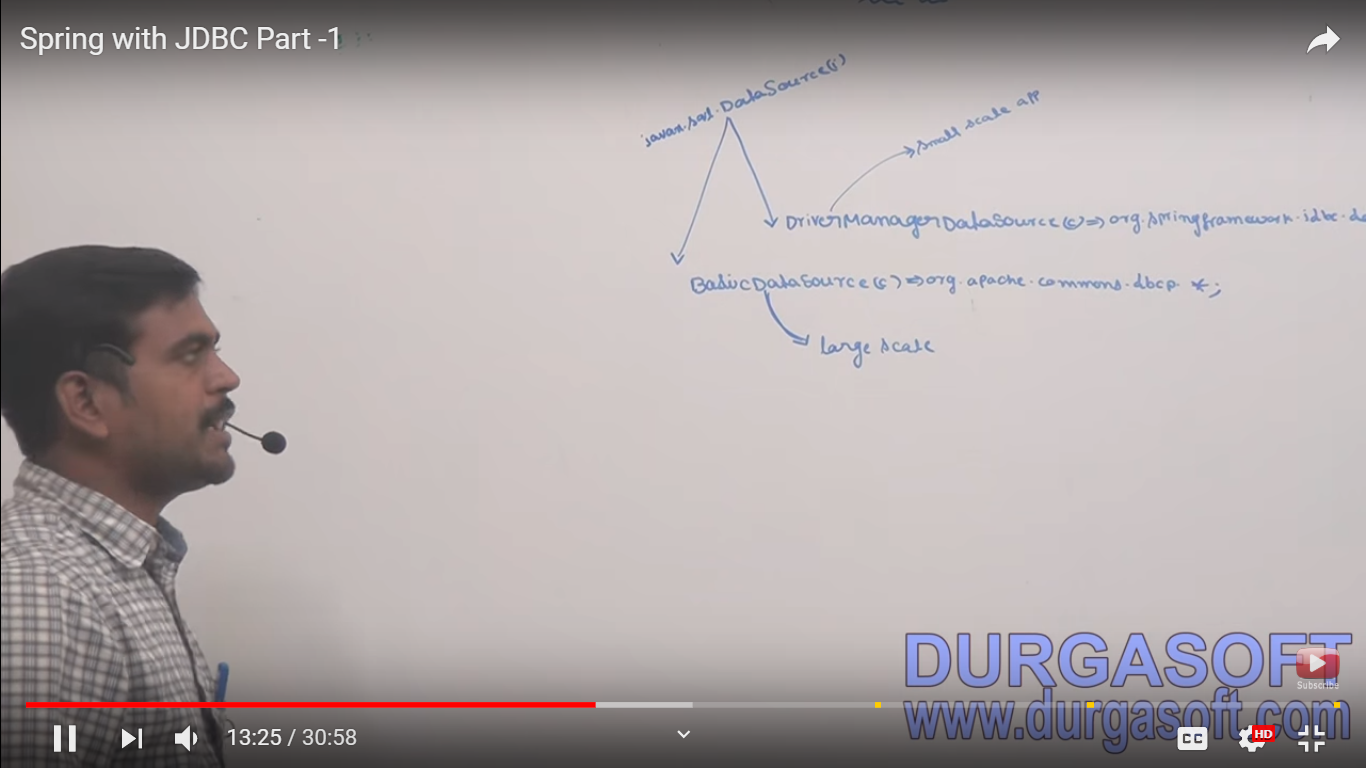 Spring with JDBC Part -1
javax.sql.DataSource(i)
small scale app
DriverManagerDataSource(c)=>org.springframework.jdbc.da
BasicDataSource(c)=>org.apache.commons.dbcp.*;
large scale
DURGASOFT
Subscribe
www.durgasoft.com
13:25 / 30:58
CC
HD